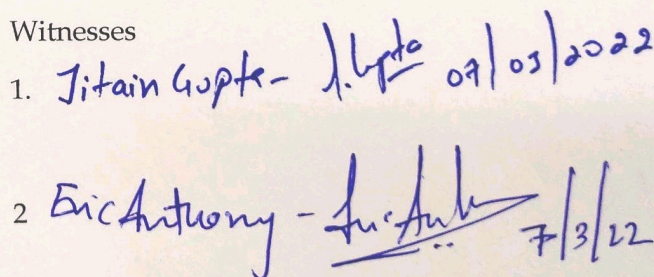 Witnesses
1. Jitain Gupta - J. Gupta 07/03/2022
2 Eric Anthony - 7/3/22